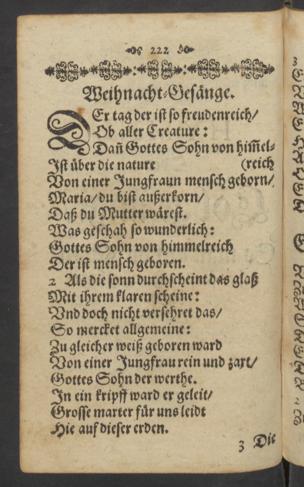 222
Weihnacht-Gesänge.
DEr tag der ist so freudenreich/
Ob aller Creature:
Dañ Gottes Sohn von him̃el-
Ist über die nature (reich
Von einer Jungfraun mensch geborn/
Maria/ du bist außerkorn/
Daß du Mutter wärest.
Was geschah so wunderlich:
Gottes Sohn von himmelreich
Der ist mensch geboren.
2 Als die sonn durchscheint das glaß
Mit ihrem klaren scheine:
Vnd doch nicht versehret das/
So mercket allgemeine:
Zu gleicher weiß geboren ward
Von einer Jungfrau rein und zart/
Gottes Sohn der werthe.
In ein kripff ward er geleit/
Grosse marter für uns leidt
Hie auf dieser erden.
3 Die